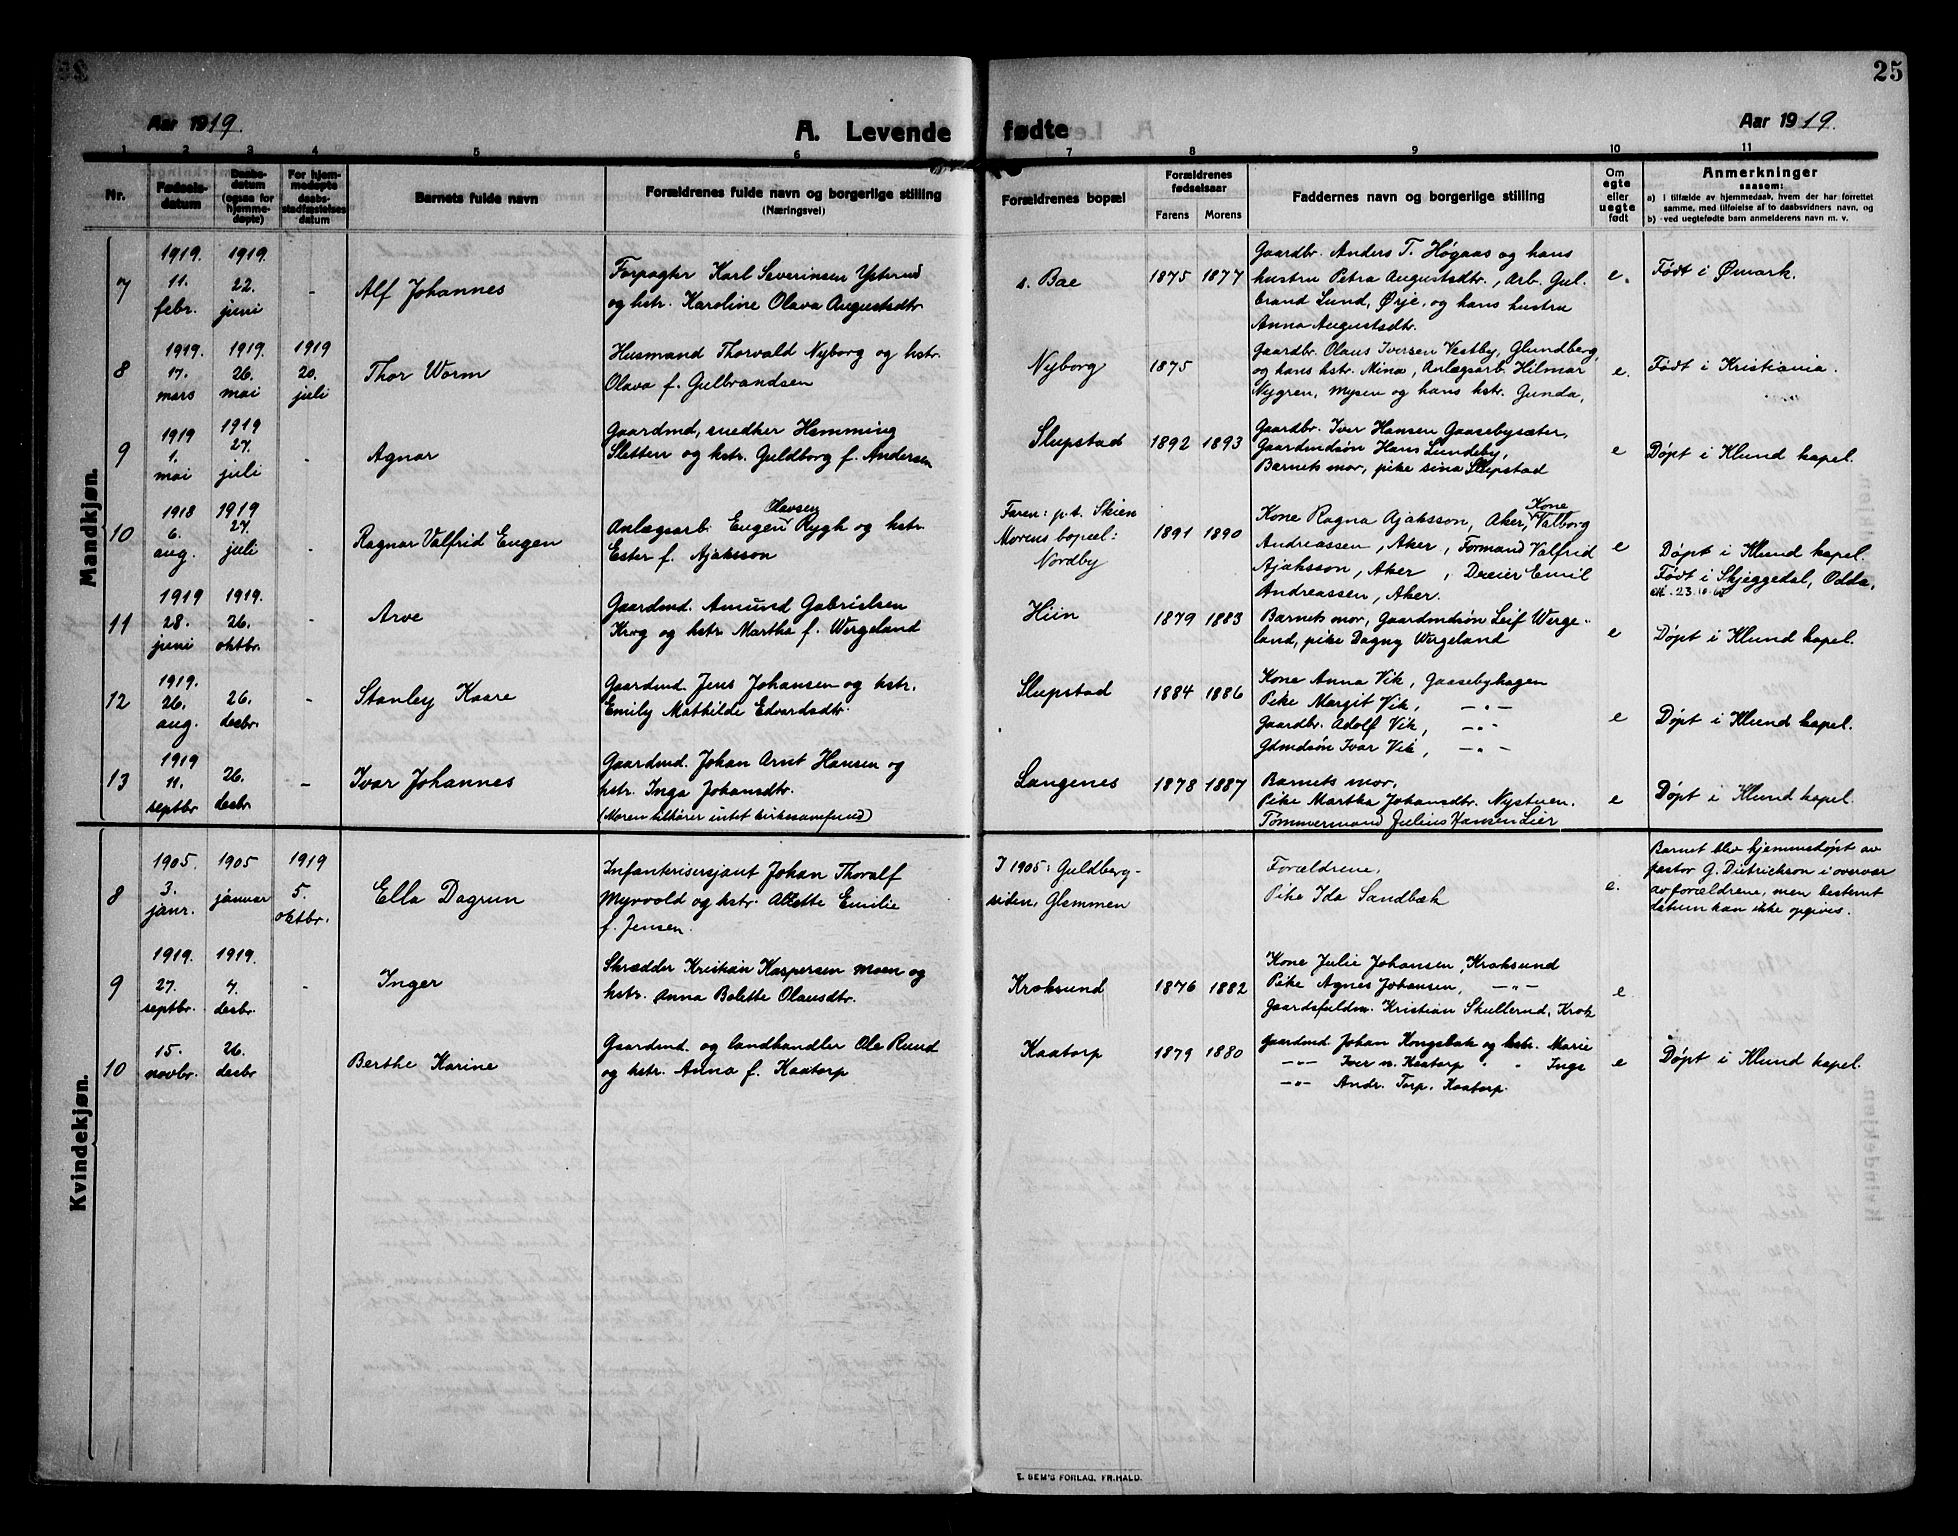 25
Aar 1919.
A. Levende fødte
Aar 1919.
1 2 3 4 5 6 7 8 9 10 11
Nr.
Fødsels-
datum
Daabs-
datum
(ogsaa for
hjemme-
døpte)
For hjem-
medøpte
daabs-
stadfæstelses
datum
Barnets fulde navn
Forældrenes fulde navn og borgerlige stilling
(Næringsvei)
Forældrenes bopæl
Forældrenes
fødselsaar
Farens Morens
Faddernes navn og borgerlige stilling
Om
egte
eller
uegte
født
Anmerkninger
saasom:
a) i tilfælde av hjemmedaab, hvem der har forrettet
samme, med tilføielse av to daabsvidners navn, og
b) ved uegtefødte barn anmelderens navn m. v.
Mandkjøn.
7
1919.
11.
febr.
1919.
22.
juni
-
Alf Johannes
Forpagter Karl Severinsen Ysterud
og hstr. Karoline Olava Augustsdtr.
s. Bae
1875 1877
Gaardbr. Anders T. Høgaas og hans
hustru Petra Augustsdtr., Arb. Gul-
brand Lund, Ørje, og hans hustru
Anna Augustsdtr.
e.
Født i Ømark.
8
1919.
17.
mars
1919.
26.
mai
1919
20.
juli
Thor Worm
Husmand Thorvald Nyborg og hstr.
Olava f. Gulbrandsen
Nyborg
1875
Gaardbr. Olaus Iversen Vestby, Glundberg,
og hans hstr. Mina, Anlægsarb. Hilmar
Nygren, Mysen og hans hstr. Gunda,
e.
Født i Kristiania.
9
1919
1.
mai
1919
27.
juli
-
Agnar
Gaardmd, snedker Hemming
Sletten og hstr. Guldborg f. Andersen
Slupstad
1892 1893
Gaardbr. Iver Hansen Gaasebysæter,
Gaardmdsøn Hans Lundeby,
Barnets mor, pike Sina Slupstad
e
Døpt i Klund kapel.
10
1918
6.
aug.
1919
27.
juli
-
Ragnar Valfrid Eugen
Olavsen
Anlægsarb. Eugen Rygh og hstr.
Ester f. Ajaksson
Faren: p.t. Skien
Morens bopæl:
Nordby
1891 1890
Kone
Kone Ragna Ajaksson, Aker, Valborg
Andreassen, Aker, Formand Valfrid
Ajaksson, Aker, Dreier Emil
Andreassen, Aker.
e
Døpt i Klund kapel.
Født i Skjeggedal, Odda,
11
1919
28.
juni
1919.
26.
oktbr.
-
Arve
Gaardmd. Amund Gabrielsen
Krog og hstr. Martha f. Wergeland
Hiin
1879 1883
Barnets mor, Gaardmdsøn Leif Werge-
land, pike Dagny Wergeland
e
Døpt i Klund kapel.
12
1919.
26.
aug.
26.
desbr.
-
Stanley Kaare
Gaardmd. Jens Johansen og hstr.
Emily Mathilde Edvardsdtr.
Slupstad
1884 1886
Kone Anna Vik, Gaasebyhagen
Pike Margit Vik, -"-
Gaardbr. Adolf Vik, -"-
Gdmdsøn Ivar Vik, -"-
e
Døpt i Klund kapel.
13
1919
11.
septbr.
26.
desbr.
-
Ivar Johannes
Gaardmd. Johan Arnt Hansen og
hstr. Inga Johansdtr.
(Moren tilhører intet kirkesamfund)
Langenes
1878 1887
Barnets mor,
Pike Martha Johansdtr. Nystuen.
Tømmermand Julius Hansen Lier
e
Døpt i Klund kapel.
Kvindekjøn.
8
1905
3.
janr.
1905
januar
1919
5.
oktbr.
Ella Dagrun
Infanterisersjant Johan Thoralf
Myrvold og hstr. Alette Emilie
f. Jensen.
I 1905: Guldberg-
siden, Glemmen
Forældrene,
Pike Ida Sandbæk
e.
Barnet blev hjemmedøpt av
pastor G. Dietrichson i overvær
av forældrene, men bestemt
datum kan ikke opgives.
9
1919.
27.
septbr.
1919.
7.
desbr.
-
Inger
Skrædder Kristian Kaspersen Moen og
hstr. Anna Bolette Olausdtr.
Kroksund
1876 1882
Kone Julie Johansen, Kroksund
Pike Agnes Johansen, -"-
Gaardsfuldm. Kristian Skullerud, Krok
e
10
15.
novbr.
26.
desbr.
Berthe Karine
Gaardmd. og landhandler Ole Rund
og hstr. Anna f. Kaatorp
Kaatorp
1879 1880
Gaardmd Johan Kongsbak og hstr. Marie
-"- Iver n. Kaatorp " " Inga
-"- Andr. Torp, Kaatorp.
e
Døpt i Klund kapel.
E. SEM'S FORLAG, FR.HALD.